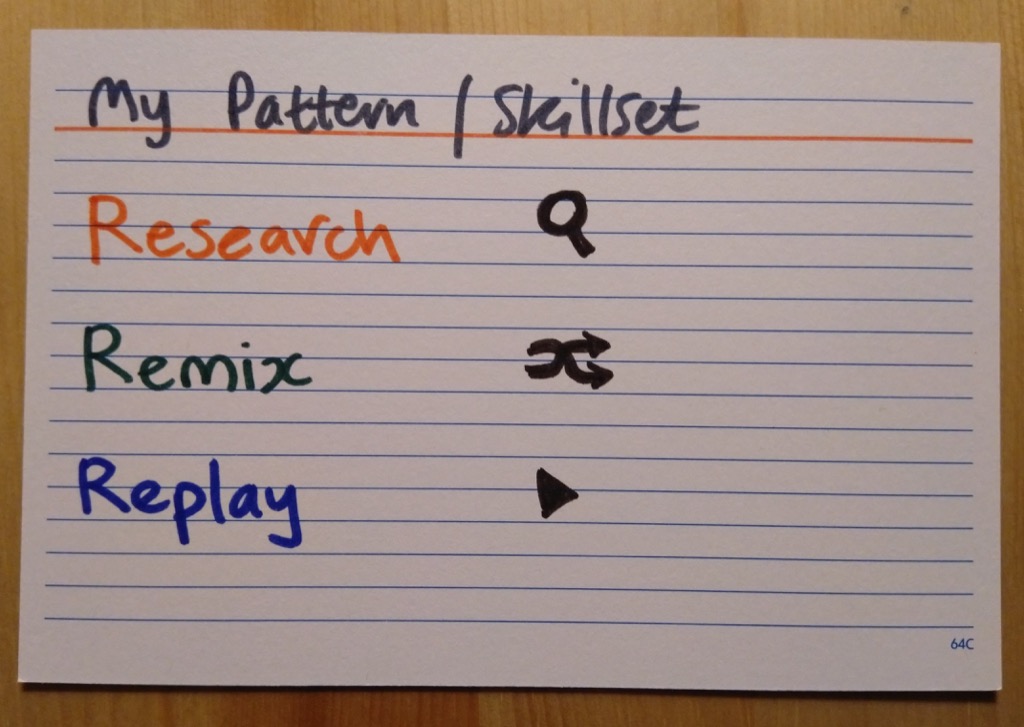 My Pattern / Skillset
Research
Remix
Replay
64C